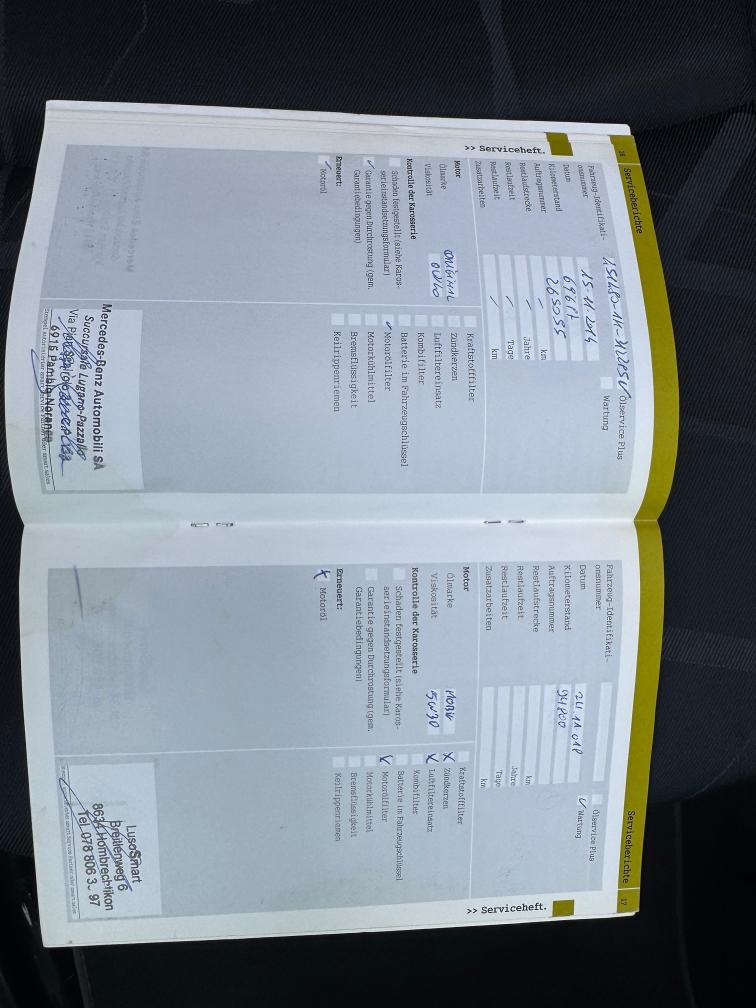 16 Serviceberichte
>> Serviceheft.
Fahrzeug-Identifikati-
onsnummer
Ölservice Plus
Wartung
Datum 15.11.2014
Kilometerstand 69617
Auftragsnummer 265055
Restlaufstrecke / km
Restlaufzeit / Jahre
Restlaufzeit / Tage
Zusatzarbeiten / km
Motor
Ölmarke ORIGINAL
Viskosität 0W40
Kontrolle der Karosserie
Schaden festgestellt (siehe Karos-
serieinstandsetzungsformular)
Garantie gegen Durchrostung (gem.
Garantiebedingungen)
Erneuert:
Motoröl
Kraftstofffilter
Zündkerzen
Luftfiltereinsatz
Kombifilter
Batterie im Fahrzeugschlüssel
Motorölfilter
Motorkühlmittel
Bremsflüssigkeit
Keilrippenriemen
Mercedes-Benz Automobili SA
Succursale Lugano-Pazzallo
Via
6915 Pambio-Noranco
Serviceberichte 17
>> Serviceheft.
Fahrzeug-Identifikati-
onsnummer
Ölservice Plus
Wartung
Datum 24.11.018
Kilometerstand 94800
Auftragsnummer
Restlaufstrecke km
Restlaufzeit Jahre
Restlaufzeit Tage
Zusatzarbeiten km
Motor
Ölmarke
Viskosität 5W30
Kontrolle der Karosserie
Schaden festgestellt (siehe Karos-
serieinstandsetzungsformular)
Garantie gegen Durchrostung (gem.
Garantiebedingungen)
Erneuert:
Motoröl
Kraftstofffilter
Zündkerzen
Luftfiltereinsatz
Kombifilter
Batterie im Fahrzeugschlüssel
Motorölfilter
Motorkühlmittel
Bremsflüssigkeit
Keilrippenriemen
LusoSmart
Breitlenweg 6
8634 Hombrechtikon
Tel. 078 806 97